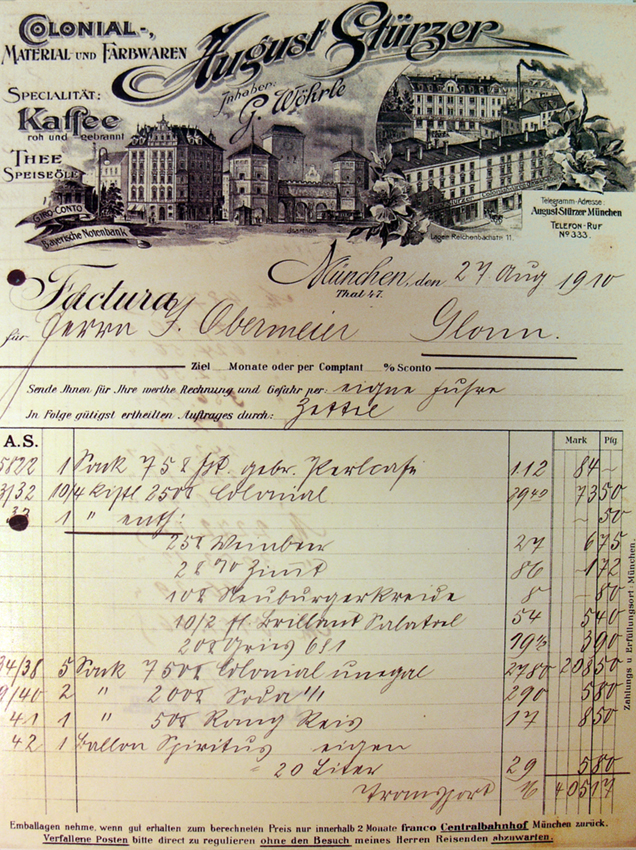 Colonial-,
Material und Farbwaren
August Stürzer
Inhaber:
G. Wöhrle
Spezialität:
Kaffee
roh und gebrannt
Thee
Speiseöle
Giro-Conto
Bayerische Notenbank
Thal
Isarthor
Lager Reichenbachstr. 11.
Telegramm-Adresse:
August Stürzer München
Telefon-Ruf
No 333.
München, den 27 Aug 1910
Thal 47.
Factura
für Herrn J. Obermeier Glonn.
Ziel Monate oder per Comptant % Sconto
Sende Ihnen für Ihre werthe Rechnung und Gefahr per: eigne Fuhre
In Folge gütigst ertheilten Auftrages durch: Zettel
A.S. Mark Pfg
5822 1 Sack 75 gebr. Perlcafe 1.12 84 -
10/4 Kistl 250 Colonial 29 40 73 50
1 " enth: - 50
25 Weinbeer 27 6 75
2 Zimmt 86 1 72
10 Neuburgerkreide 8 - 80
10/2 fl. Brillant Salatoel 54 5 40
20 Gries 19 1/2 3 90
34/38 5 Sack 750 Colonial unegal 27 80 208 50
2 " 200 Soda 290 5 80
41 1 " 50 Rang Reis 17 8 50
42 1 Ballon Spiritus eigen
20 Liter 29 5 80
Transport 405 17
Zahlungs u Erfüllungsort: München.
Emballagen nehme, wenn gut erhalten zum berechneten Preis nur innerhalb 2 Monate franco Centralbahnhof München zurück.
Verfallene Posten bitte direct zu regulieren ohne den Besuch meines Herren Reisenden abzuwarten.